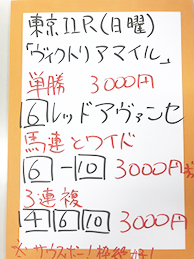 東京11R(日曜)
「ヴィクトリアマイル」
単勝 3000円
6 レッドアヴァンセ
馬連とワイド
6-10 3000円ず
3連複
4 6 10 3000円